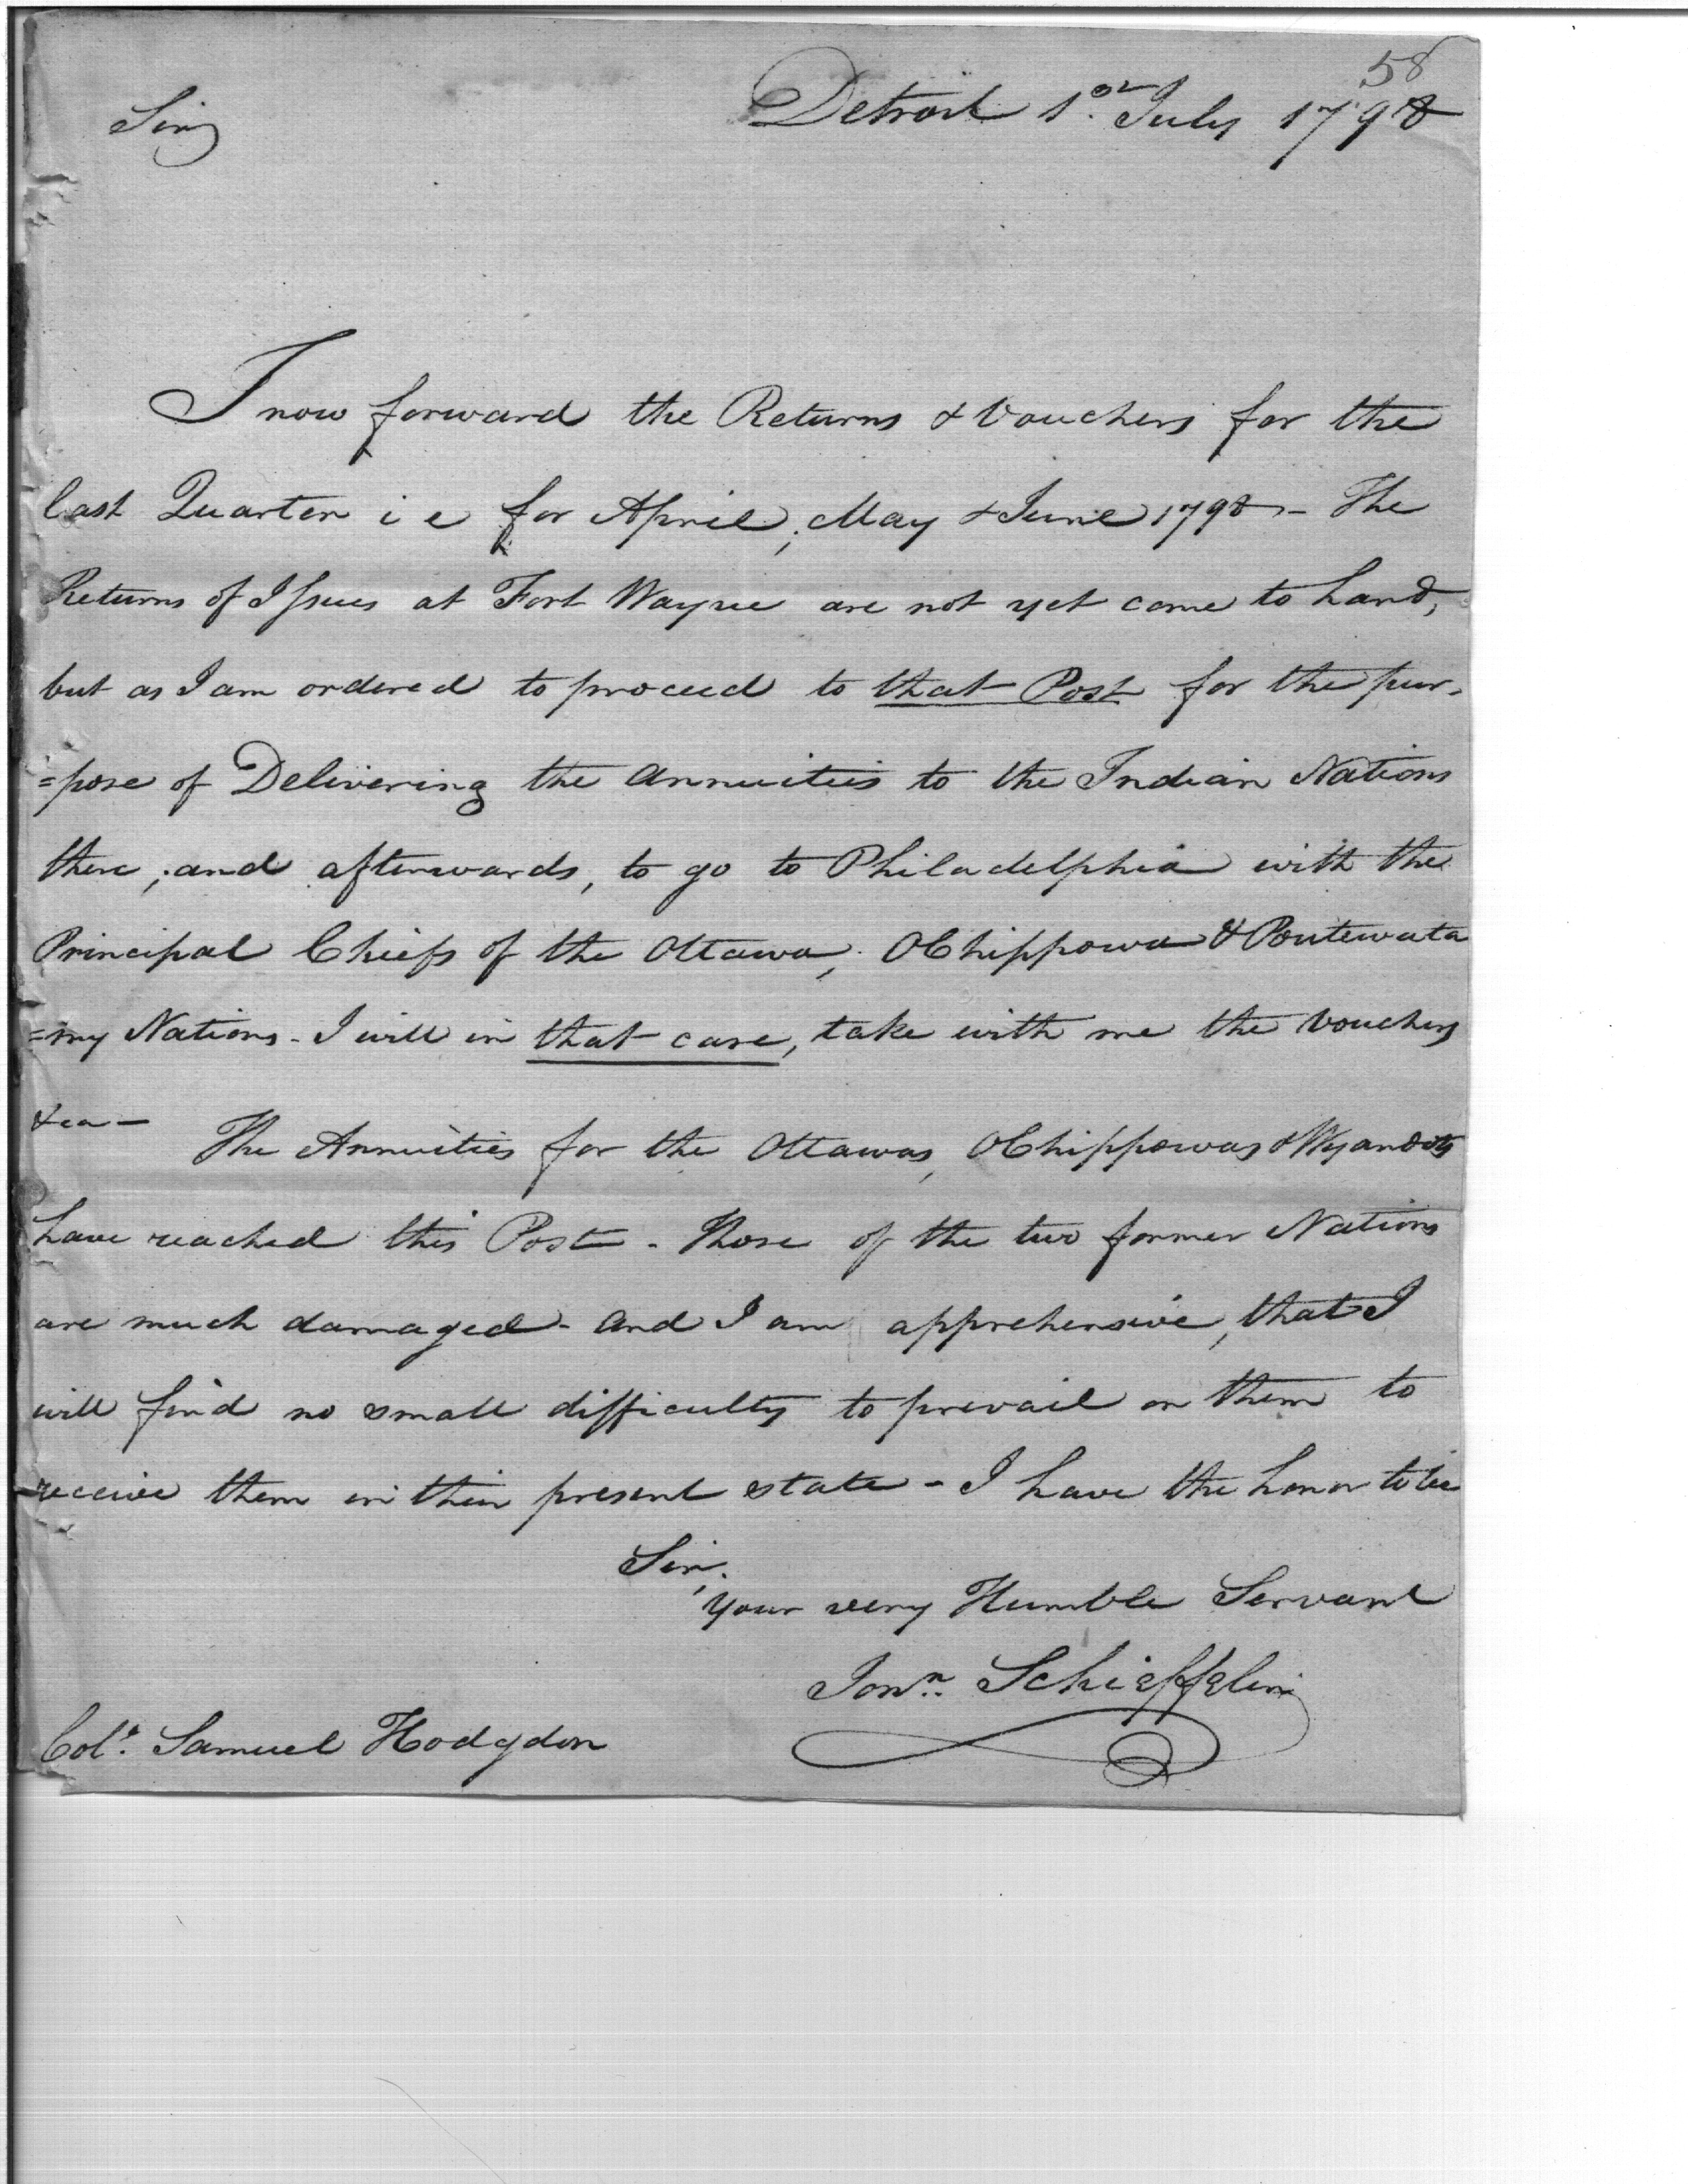 58
Sir, Detroit 1st. July 1798
I now forward the Returns & Vouchers for the
last Quarter i e for April, May & June 1798 - The
Returns of Issues at Fort Wayne are not yet come to hand,
but as I am ordered to proceed to that Post for the pur-
=pose of Delivering the Annuities to the Indian Nations
there, and afterwards, to go to Philadelphia with the
Principal Chiefs of the Ottawa, OChippowa & Poutewata
=my Nations - I will in that case, take with me the Vouchers
&ca -
The Annuities for the Ottawas, OChippowas & Wyandots
have reached this Post - Those of the two former Nations
are much damaged - and I am apprehensive, that I
will find no small difficulty to prevail on them to
receive them in their present state - I have the honor to be
Sir,
Your very Humble Servant
Jonn. Schieffelin
Colo. Samuel Hodgdon